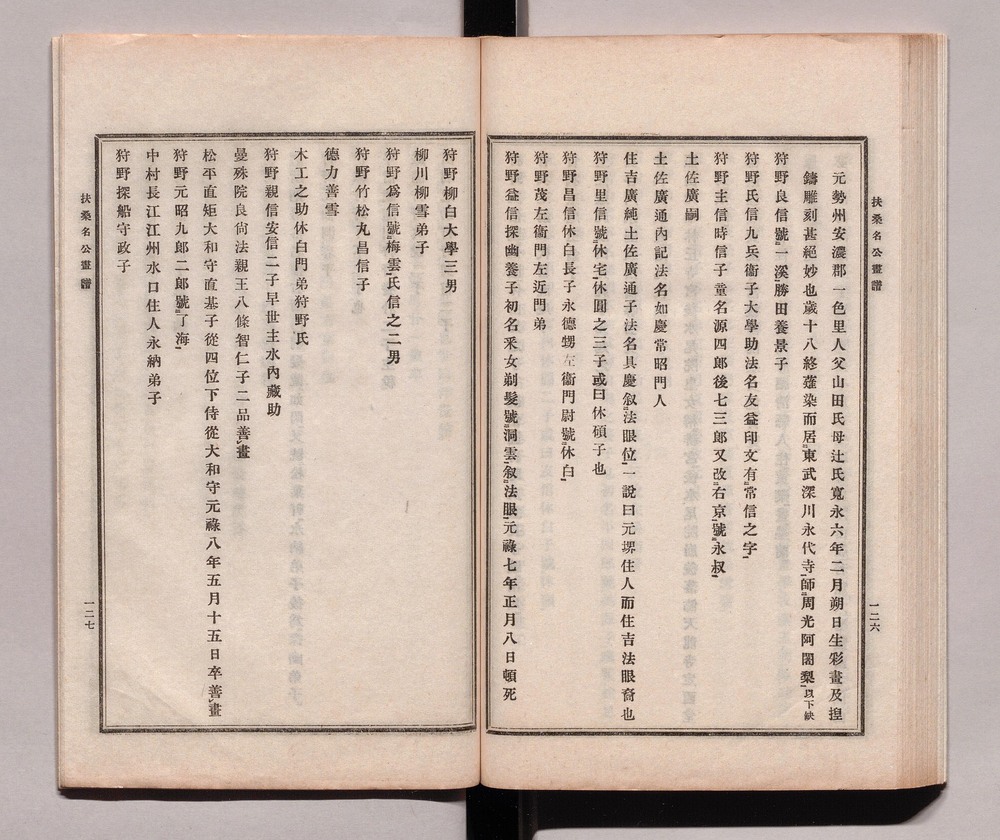 扶桑名公畫譜
一二六
元勢州安濃郡一色里人父山田氏母辻氏寬永六年二月朔日生彩畫及捏
鑄雕刻甚絕妙也歲十八終薙染而居東武深川永代寺師周光阿闍梨以下缺
狩野良信號一溪勝田養景子
狩野氏信九兵衞子大學助法名友益印文有常信之字
狩野主信時信子童名源四郎後七三郎又改右京號永叔
土佐廣嗣
土佐廣通內記法名如慶常昭門人
住吉廣純土佐廣通子法名具慶叙法眼位一說曰元堺住人而住吉法眼裔也
狩野里信號休宅休圓之三子或曰休碩子也
狩野昌信休白長子永德甥左衞門尉號休白
狩野茂左衞門左近門弟
狩野益信探幽養子初名釆女剃髮號洞雲叙法眼元祿七年正月八日頓死
狩野柳白大學三男
柳川柳雪弟子
狩野爲信號梅雲氏信之二男
狩野竹松丸昌信子
德力善雪
木工之助休白門弟狩野氏
狩野親信安信二子早世主水內藏助
曼殊院良尙法親王八條智仁子二品善畫
松平直矩大和守直基子從四位下侍從大和守元祿八年五月十五日卒善畫
狩野元昭九郎二郎號了海
中村長江江州水口住人永納弟子
狩野探船守政子
扶桑名公畫譜
一二七